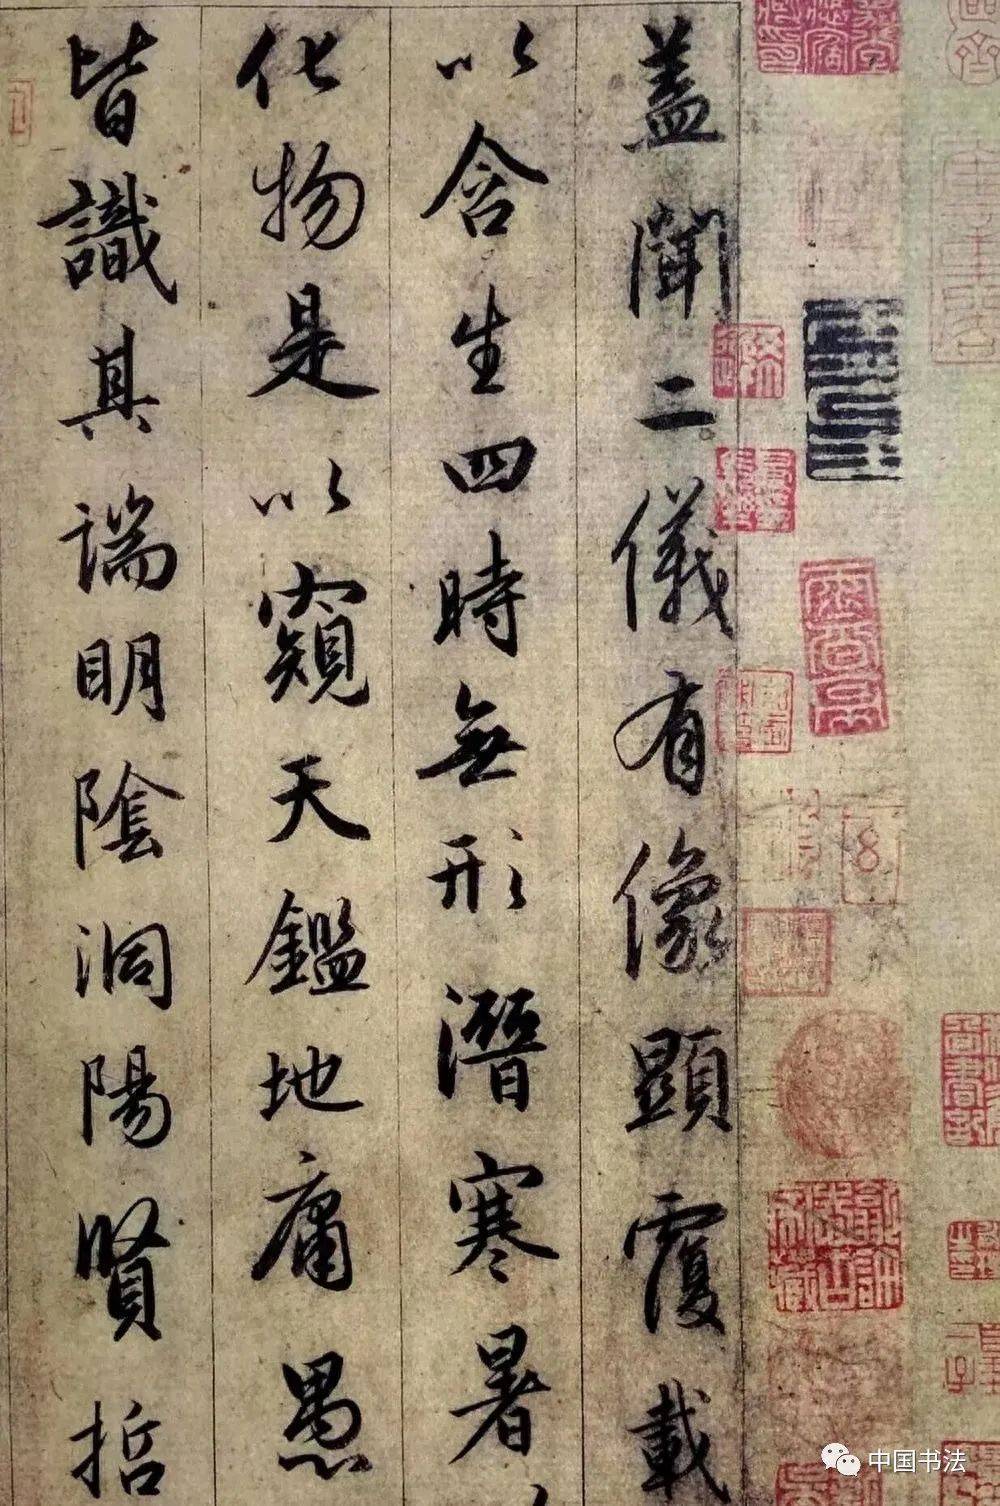 蓋聞二儀有像顯覆載
以含生四時無形潛寒暑
化物是以窺天鑑地庸愚
皆識其端明陰洞陽賢哲
中国书法